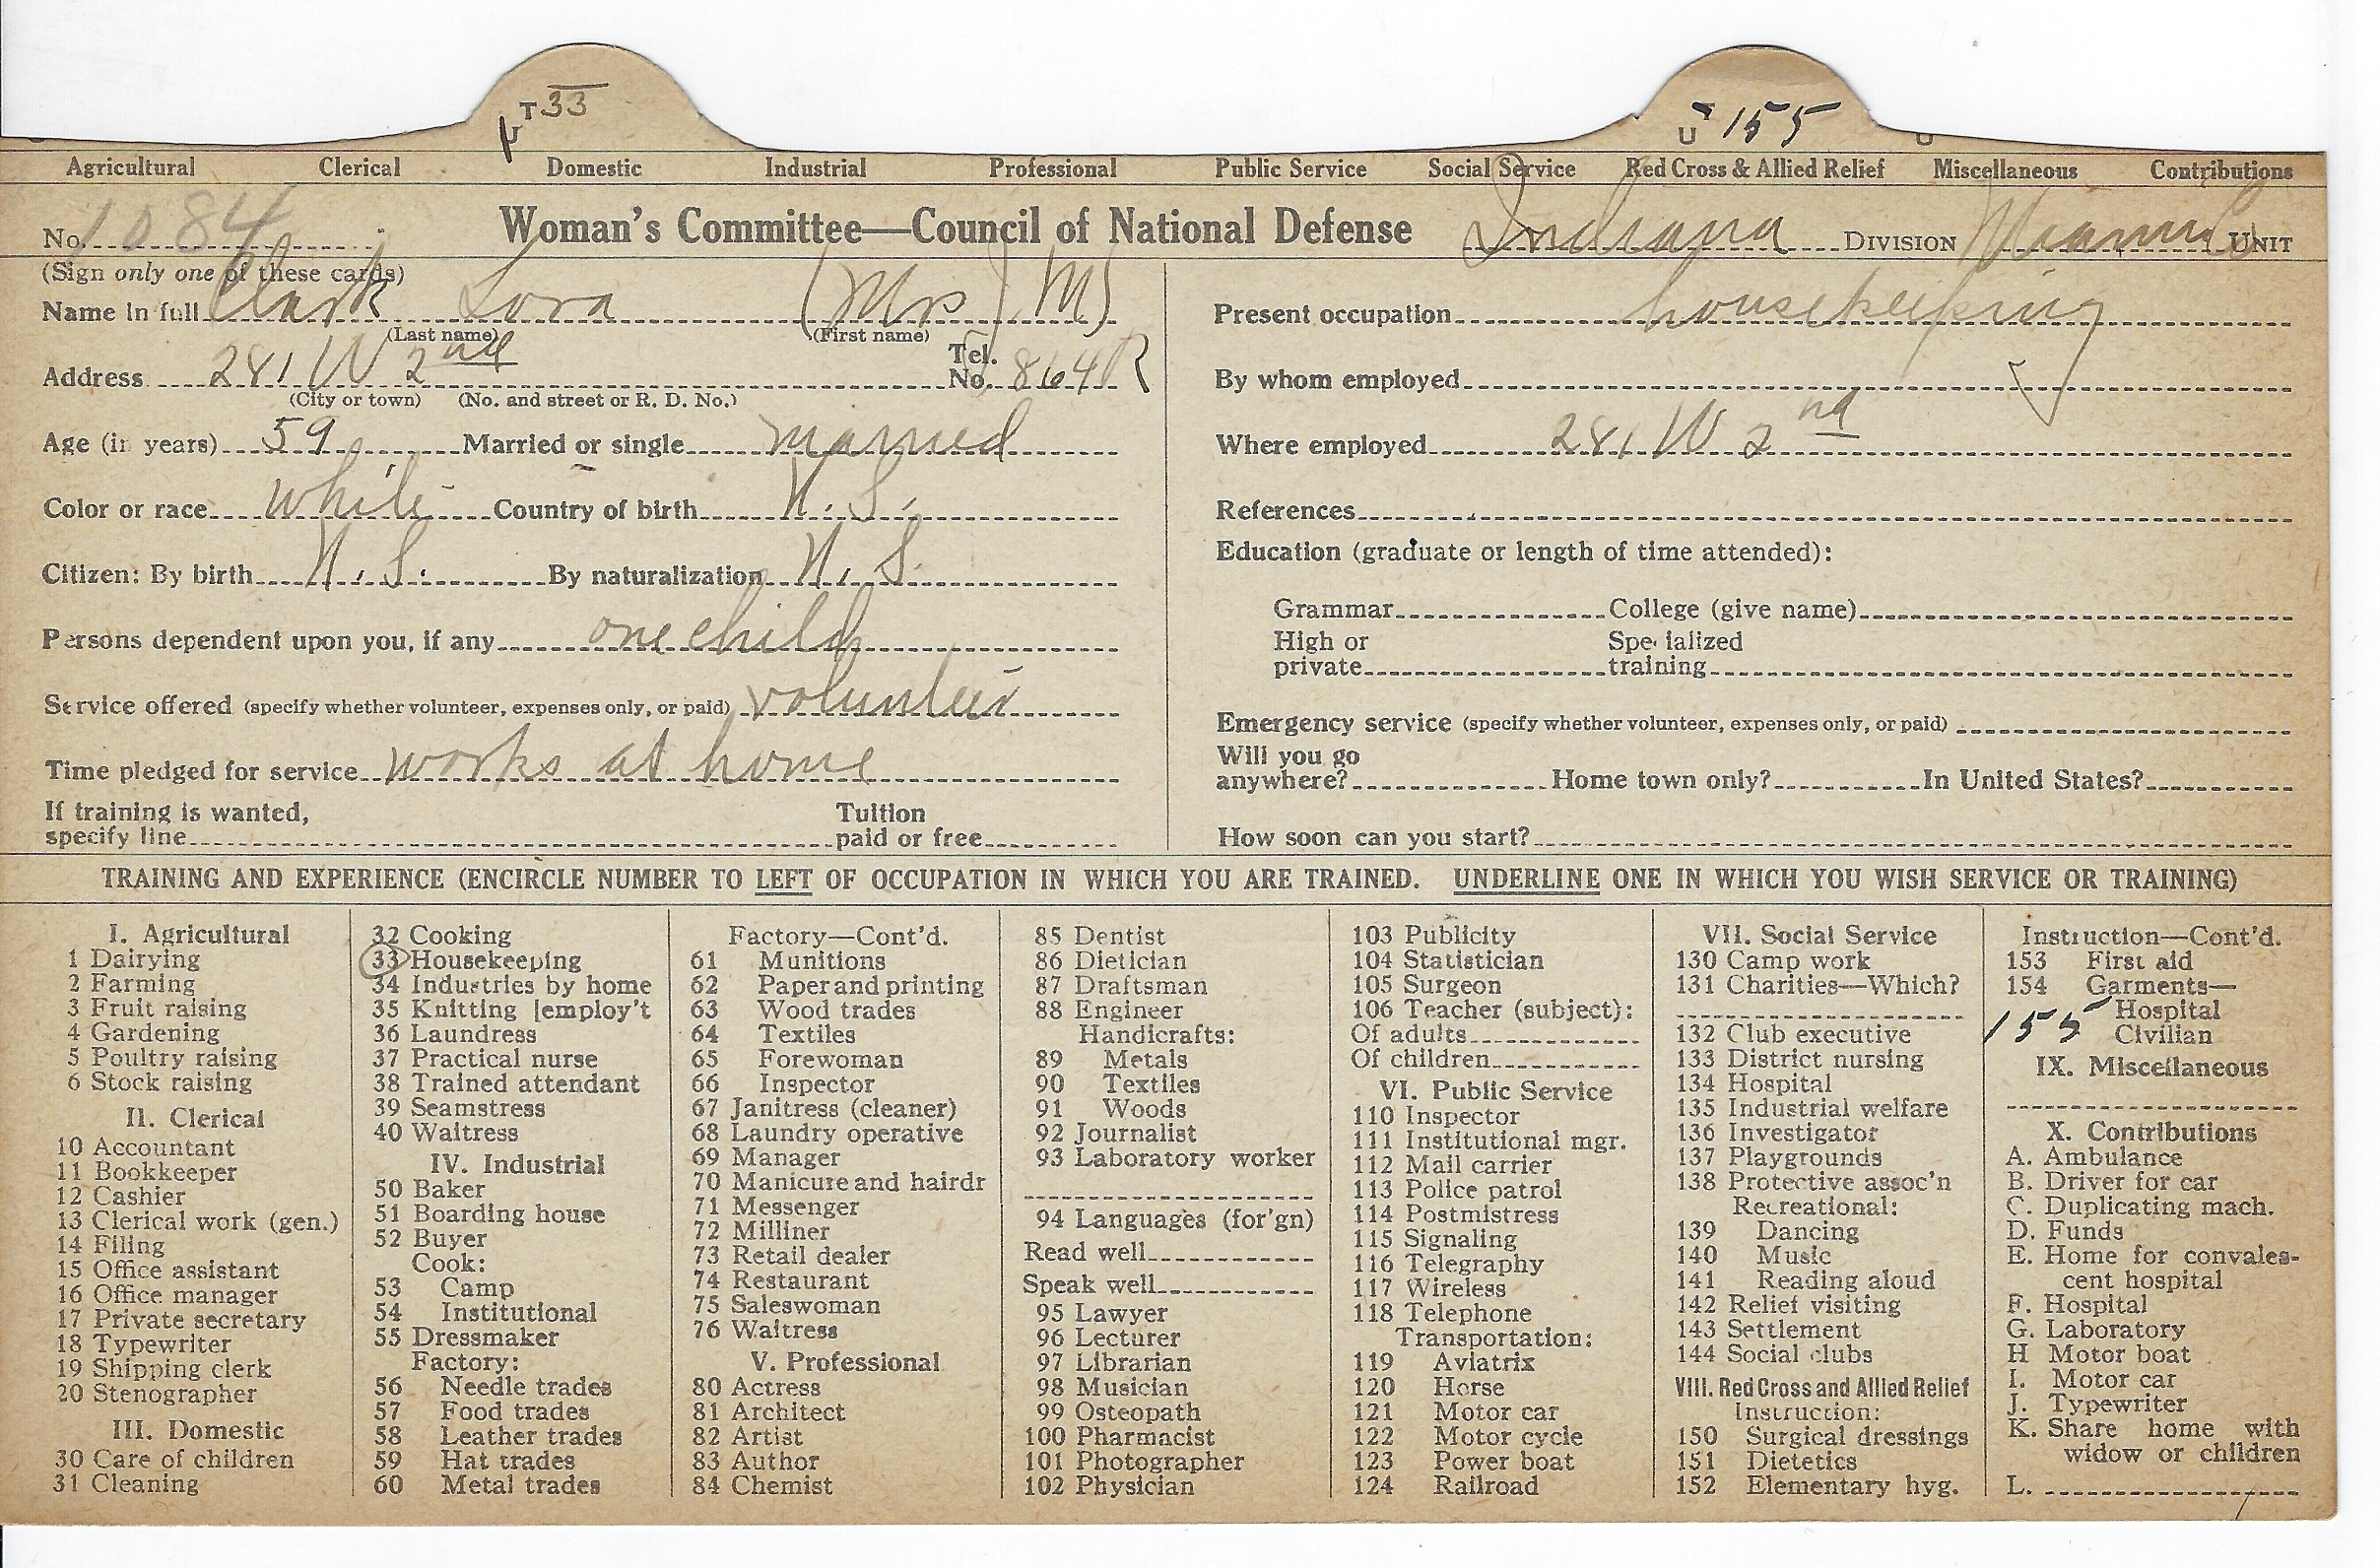 T 33
U
U 155
U
Agricultural Clerical Domestic Industrial Professional Public Service Social Service Red Cross & Allied Relief Miscellaneous Contributions
No. 1084 Woman's Committee—Council of National Defense Indiana DIVISION Miami UNIT
(Sign only one of these cards)
Name in full Clark Lora (Mrs) M)
(Last name) (First name)
Address 281 W 2nd Tel. No. 864R
(City or town) (No. and street or R. D. No.)
Age (in years) 59 Married or single married
Color or race white Country of birth U. S.
Citizen: By birth U. S. By naturalization U. S.
Persons dependent upon you, if any one child
Service offered (specify whether volunteer, expenses only, or paid) volunteer
Time pledged for service works at home
If training is wanted,
specify line Tuition paid or free
Present occupation housekeeping
By whom employed
Where employed 281 W 2nd
References
Education (graduate or length of time attended):
Grammar College (give name)
High or private Specialized training
Emergency service (specify whether volunteer, expenses only, or paid)
Will you go
anywhere? Home town only? In United States?
How soon can you start?
TRAINING AND EXPERIENCE (ENCIRCLE NUMBER TO LEFT OF OCCUPATION IN WHICH YOU ARE TRAINED. UNDERLINE ONE IN WHICH YOU WISH SERVICE OR TRAINING)
I. Agricultural
1 Dairying
2 Farming
3 Fruit raising
4 Gardening
5 Poultry raising
6 Stock raising
II. Clerical
10 Accountant
11 Bookkeeper
12 Cashier
13 Clerical work (gen.)
14 Filing
15 Office assistant
16 Office manager
17 Private secretary
18 Typewriter
19 Shipping clerk
20 Stenographer
III. Domestic
30 Care of children
31 Cleaning
32 Cooking
33 Housekeeping
34 Industries by home
35 Knitting [employ't
36 Laundress
37 Practical nurse
38 Trained attendant
39 Seamstress
40 Waitress
IV. Industrial
50 Baker
51 Boarding house
52 Buyer
Cook:
53 Camp
54 Institutional
55 Dressmaker
Factory:
56 Needle trades
57 Food trades
58 Leather trades
59 Hat trades
60 Metal trades
Factory—Cont'd.
61 Munitions
62 Paper and printing
63 Wood trades
64 Textiles
65 Forewoman
66 Inspector
67 Janitress (cleaner)
68 Laundry operative
69 Manager
70 Manicure and hairdr
71 Messenger
72 Milliner
73 Retail dealer
74 Restaurant
75 Saleswoman
76 Waitress
V. Professional
80 Actress
81 Architect
82 Artist
83 Author
84 Chemist
85 Dentist
86 Dietician
87 Draftsman
88 Engineer
Handicrafts:
89 Metals
90 Textiles
91 Woods
92 Journalist
93 Laboratory worker
94 Languages (for'gn)
Read well
Speak well
95 Lawyer
96 Lecturer
97 Librarian
98 Musician
99 Osteopath
100 Pharmacist
101 Photographer
102 Physician
103 Publicity
104 Statistician
105 Surgeon
106 Teacher (subject):
Of adults
Of children
VI. Public Service
110 Inspector
111 Institutional mgr.
112 Mail carrier
113 Police patrol
114 Postmistress
115 Signaling
116 Telegraphy
117 Wireless
118 Telephone
Transportation:
119 Aviatrix
120 Horse
121 Motor car
122 Motor cycle
123 Power boat
124 Railroad
VII. Social Service
130 Camp work
131 Charities—Which?
132 Club executive
133 District nursing
134 Hospital
135 Industrial welfare
136 Investigator
137 Playgrounds
138 Protective assoc'n
Recreational:
139 Dancing
140 Music
141 Reading aloud
142 Relief visiting
143 Settlement
144 Social clubs
VIII. Red Cross and Allied Relief
Instruction:
150 Surgical dressings
151 Dietetics
152 Elementary hyg.
Instruction—Cont'd.
153 First aid
154 Garments—
Hospital
155 Civilian
IX. Miscellaneous
X. Contributions
A. Ambulance
B. Driver for car
C. Duplicating mach.
D. Funds
E. Home for convales-
cent hospital
F. Hospital
G. Laboratory
H Motor boat
I. Motor car
J. Typewriter
K. Share home with
widow or children
L.